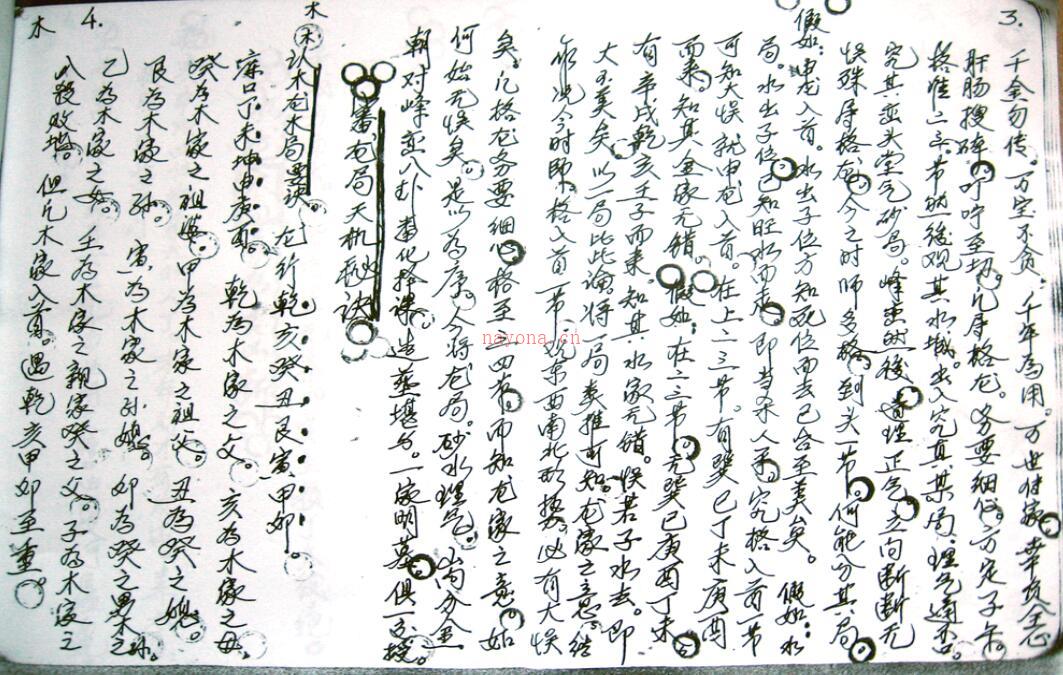 3. 千金勿传。万宝不贪。千年为用。万世付家。幸及全心
肝肠搜碎。叮咛至切。凡序格龙。务要细似。方定子午。
格准二三节然后观其水城。出入究真某局。理气通否。
究其峦头堂气砂局。峰峦。然后道理正气立向断断无
误殊序格龙今之时师多格到头一节。何能分其局
假如。申龙入首。水出子位方知死位而去已合至美矣。假如。水
局。水出子位已知旺水而来。即当杀人矣。究格入首一节
可知大误就申龙入首。在上二三节。有巽巳丁未庚酉
而来。知其金家无错。假如。在二三节无巽巳庚酉丁未
有辛戌乾亥壬子而来。知其水家无错。误若子水去。即
大至美矣。以一局比此论将一局类推可知。龙家之意。结
尔况今时师。格入首一节。说东西南北形势。必有大误
矣。凡格龙务要细心格至三四节而知龙家之意。如
何始无误矣。是以为序。今将龙局。砂水理气。山向分金
朝对峰峦入卦。变化择课。造葬堪舆。一家明墓俱一立授。
审龙局天机秘诀
木 认木龙木局要诀 龙行乾亥癸丑艮寅甲卯。
库口丁未坤申庚酉。乾为木家之父 亥为木家之母
癸为木家之祖婆。甲为木家之祖父。丑为癸之媳。
艮为木家之孙 寅为木家之孙媳。卯为癸之男木之孙。
4. 乙为木家之女 壬为木家之亲家癸之父。子为木家之
木 八段败塔。但凡木家入首。遇乾亥甲卯至重。
nayona.cn